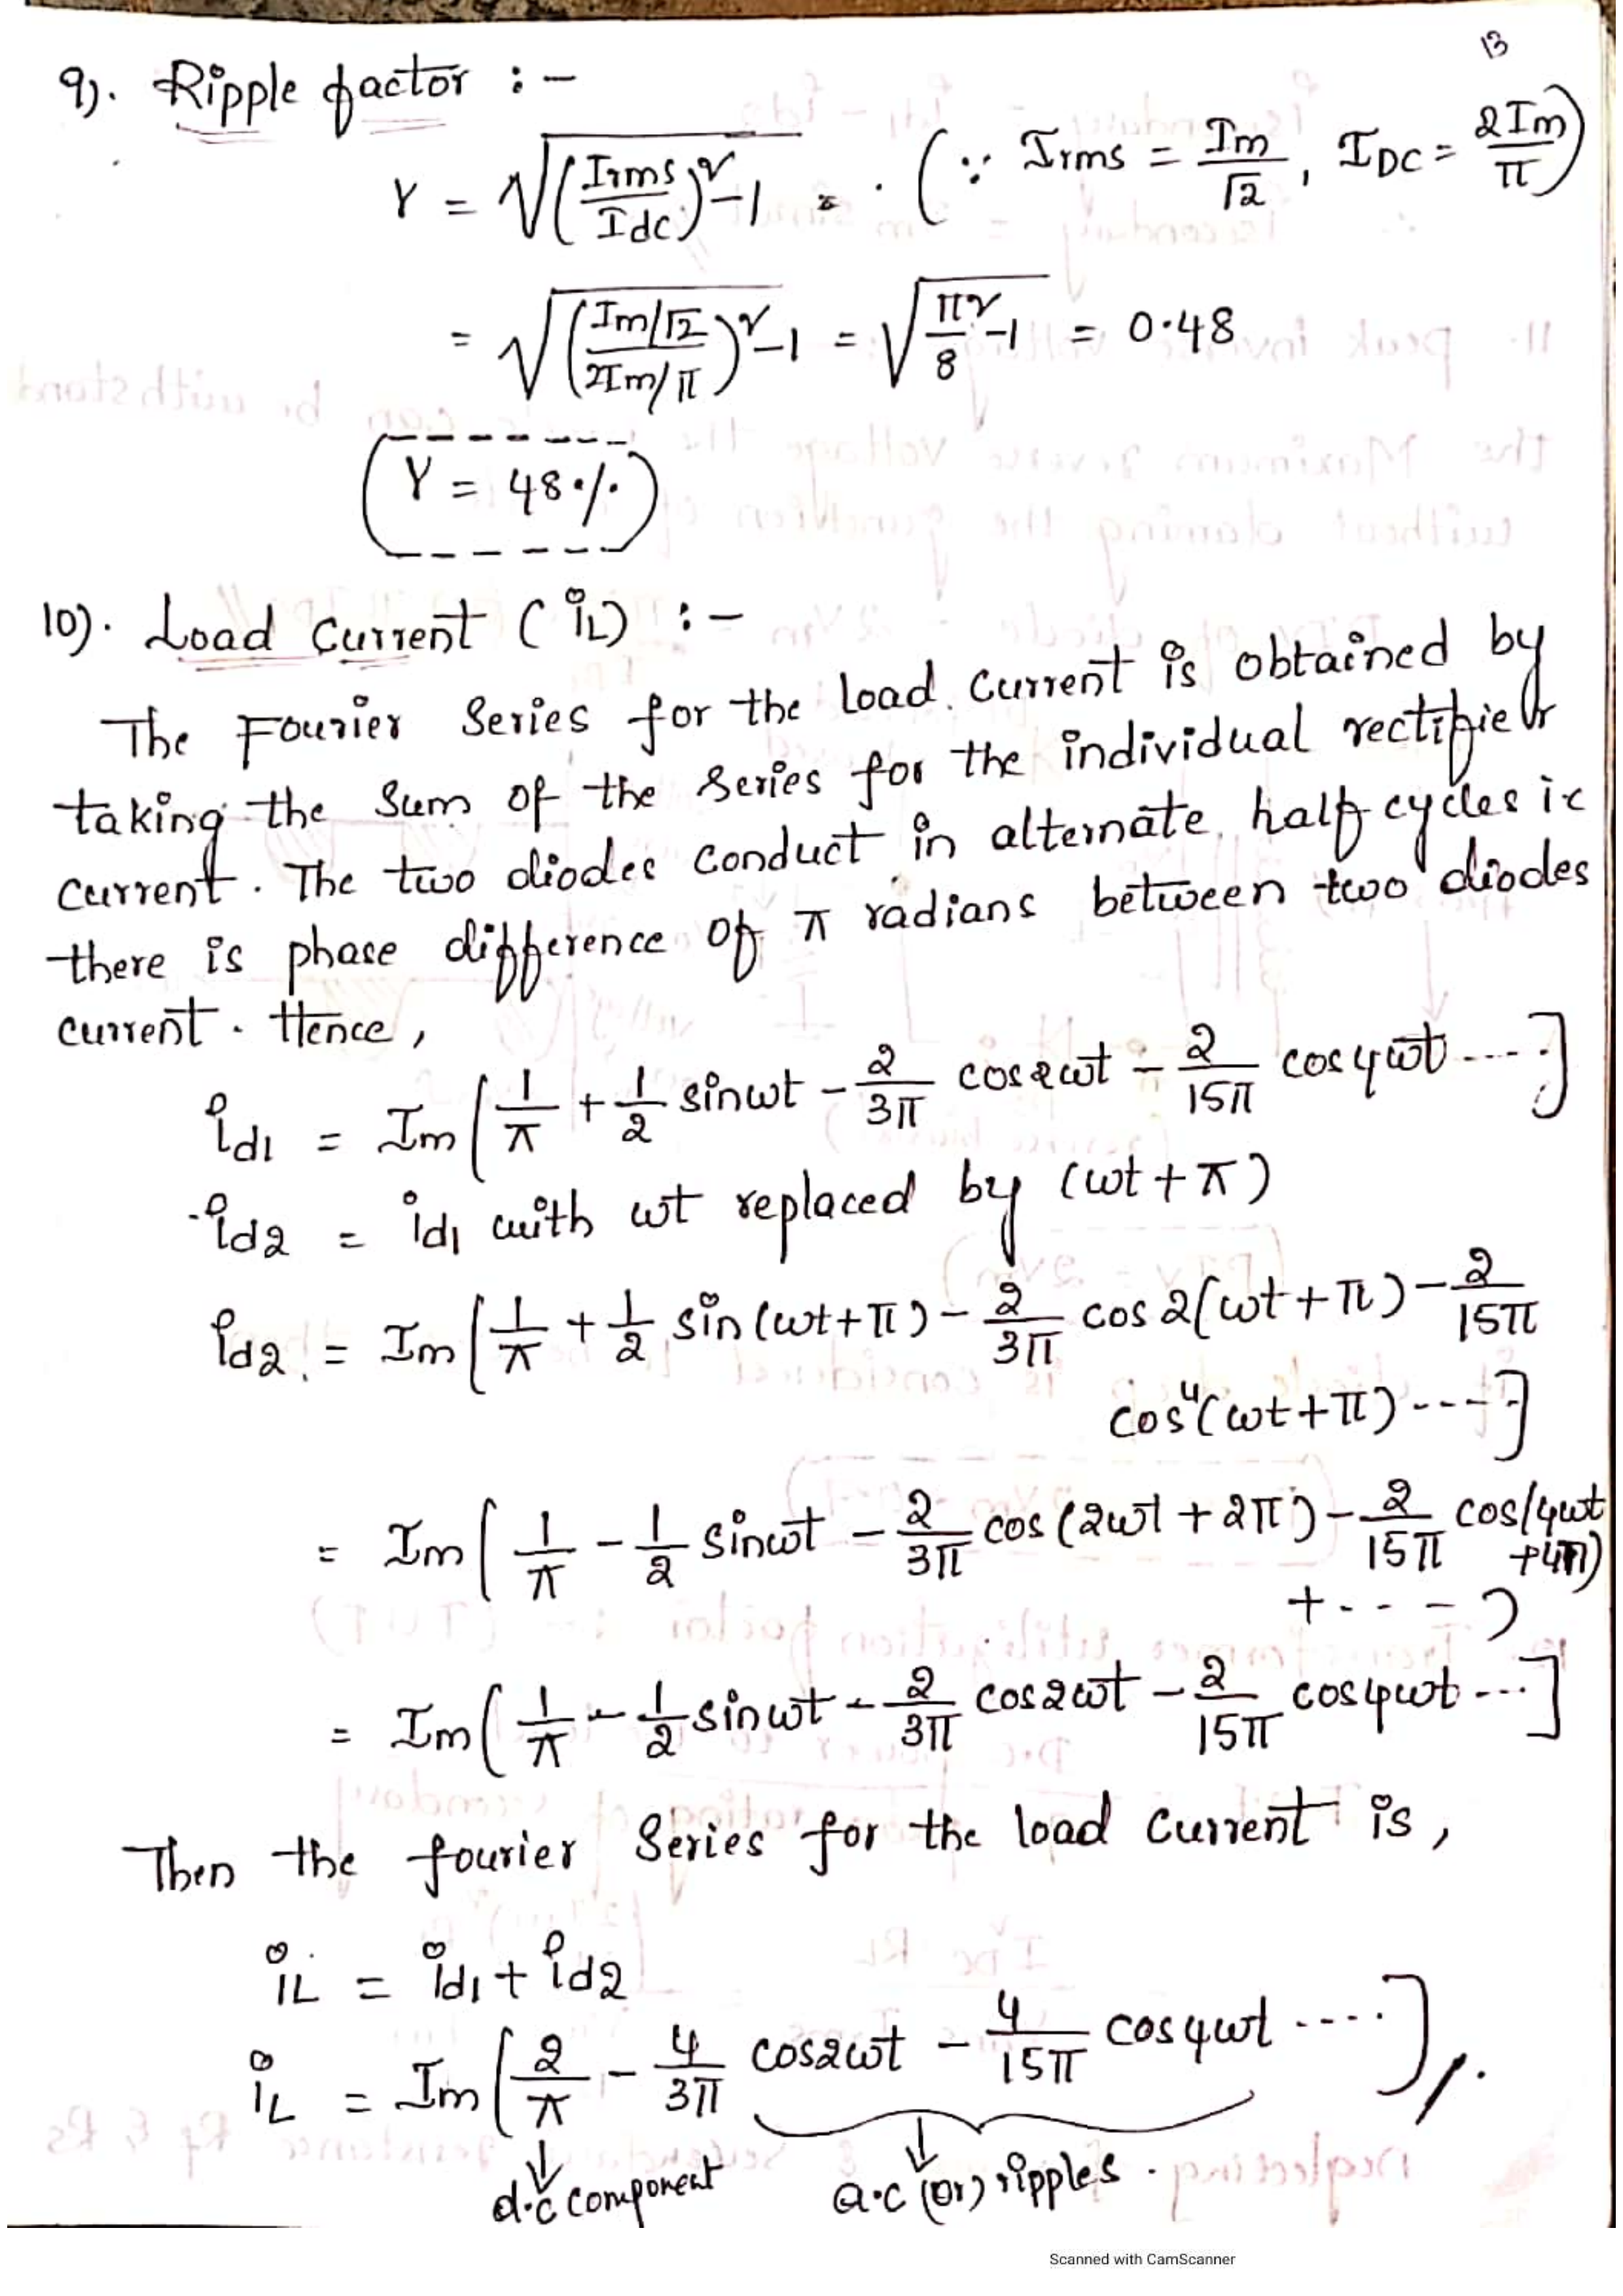 13
9). Ripple factor :-
γ = √((Irms/Idc)²-1) = . (∵ Irms = Im/√2, IDC = 2Im/π)
= √((Im/√2 / 2Im/π)²-1) = √(π²/8 -1) = 0.48
γ = 48%
10). Load Current (iL) :-
The Fourier Series for the load current is obtained by
taking the sum of the series for the individual rectifier
current. The two diodes conduct in alternate half cycles ie
there is phase difference of π radians between two diodes
current. Hence,
id1 = Im[1/π + 1/2 sinωt - 2/3π cos2ωt - 2/15π cos4ωt ....]
id2 = id1 with ωt replaced by (ωt+π)
id2 = Im[1/π + 1/2 sin(ωt+π) - 2/3π cos2(ωt+π) - 2/15π
cos4(ωt+π) ----]
= Im[1/π - 1/2 sinωt - 2/3π cos(2ωt+2π) - 2/15π cos(4ωt
+4π)
+ - - - )
= Im(1/π - 1/2 sinωt - 2/3π cos2ωt - 2/15π cos4ωt ...]
Then the fourier series for the load current is,
iL = id1 + id2
iL = Im[2/π - 4/3π cos2ωt - 4/15π cos4ωt ....]
d.c component a.c (or) ripples.
Scanned with CamScanner